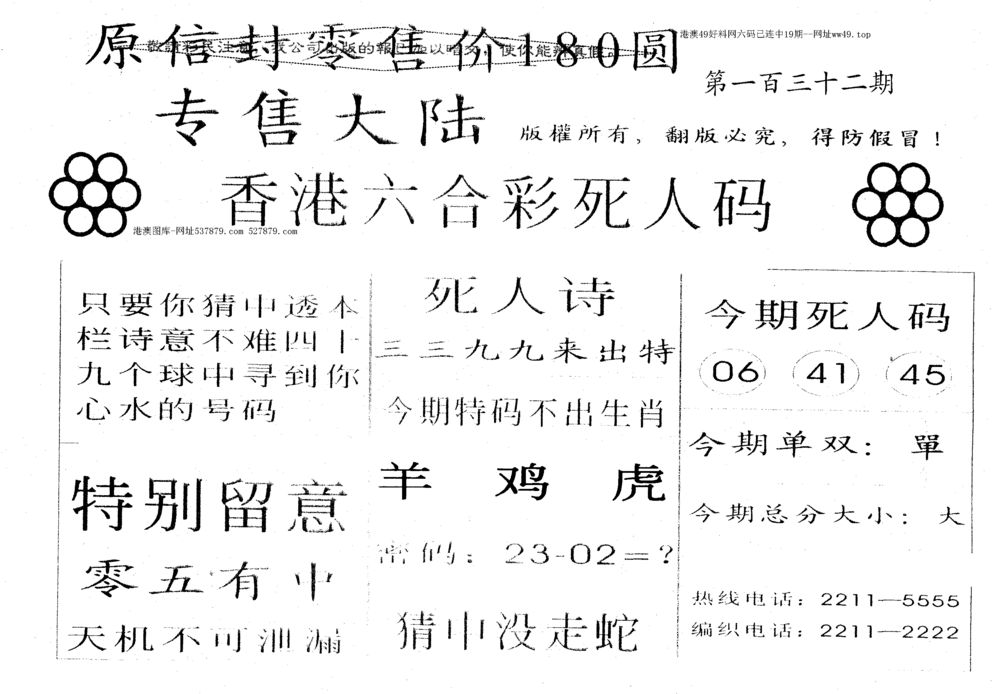 港澳49好料网六码已连中19期--网址ww49.top
敬請彩民注意
原信封零售价180圆
第一百三十二期
专售大陆
版權所有，翻版必究，得防假冒！
香港六合彩死人码
港澳图库-网址537879.com 527879.com
只要你猜中透本
栏诗意不难四十
九个球中寻到你
心水的号码
特别留意
零五有中
天机不可泄漏
死人诗
三三九九来出特
今期特码不出生肖
羊 鸡 虎
密码：23-02=?
猜中没走蛇
今期死人码
06 41 45
今期单双：單
今期总分大小：大
热线电话：2211—5555
编织电话：2211—2222